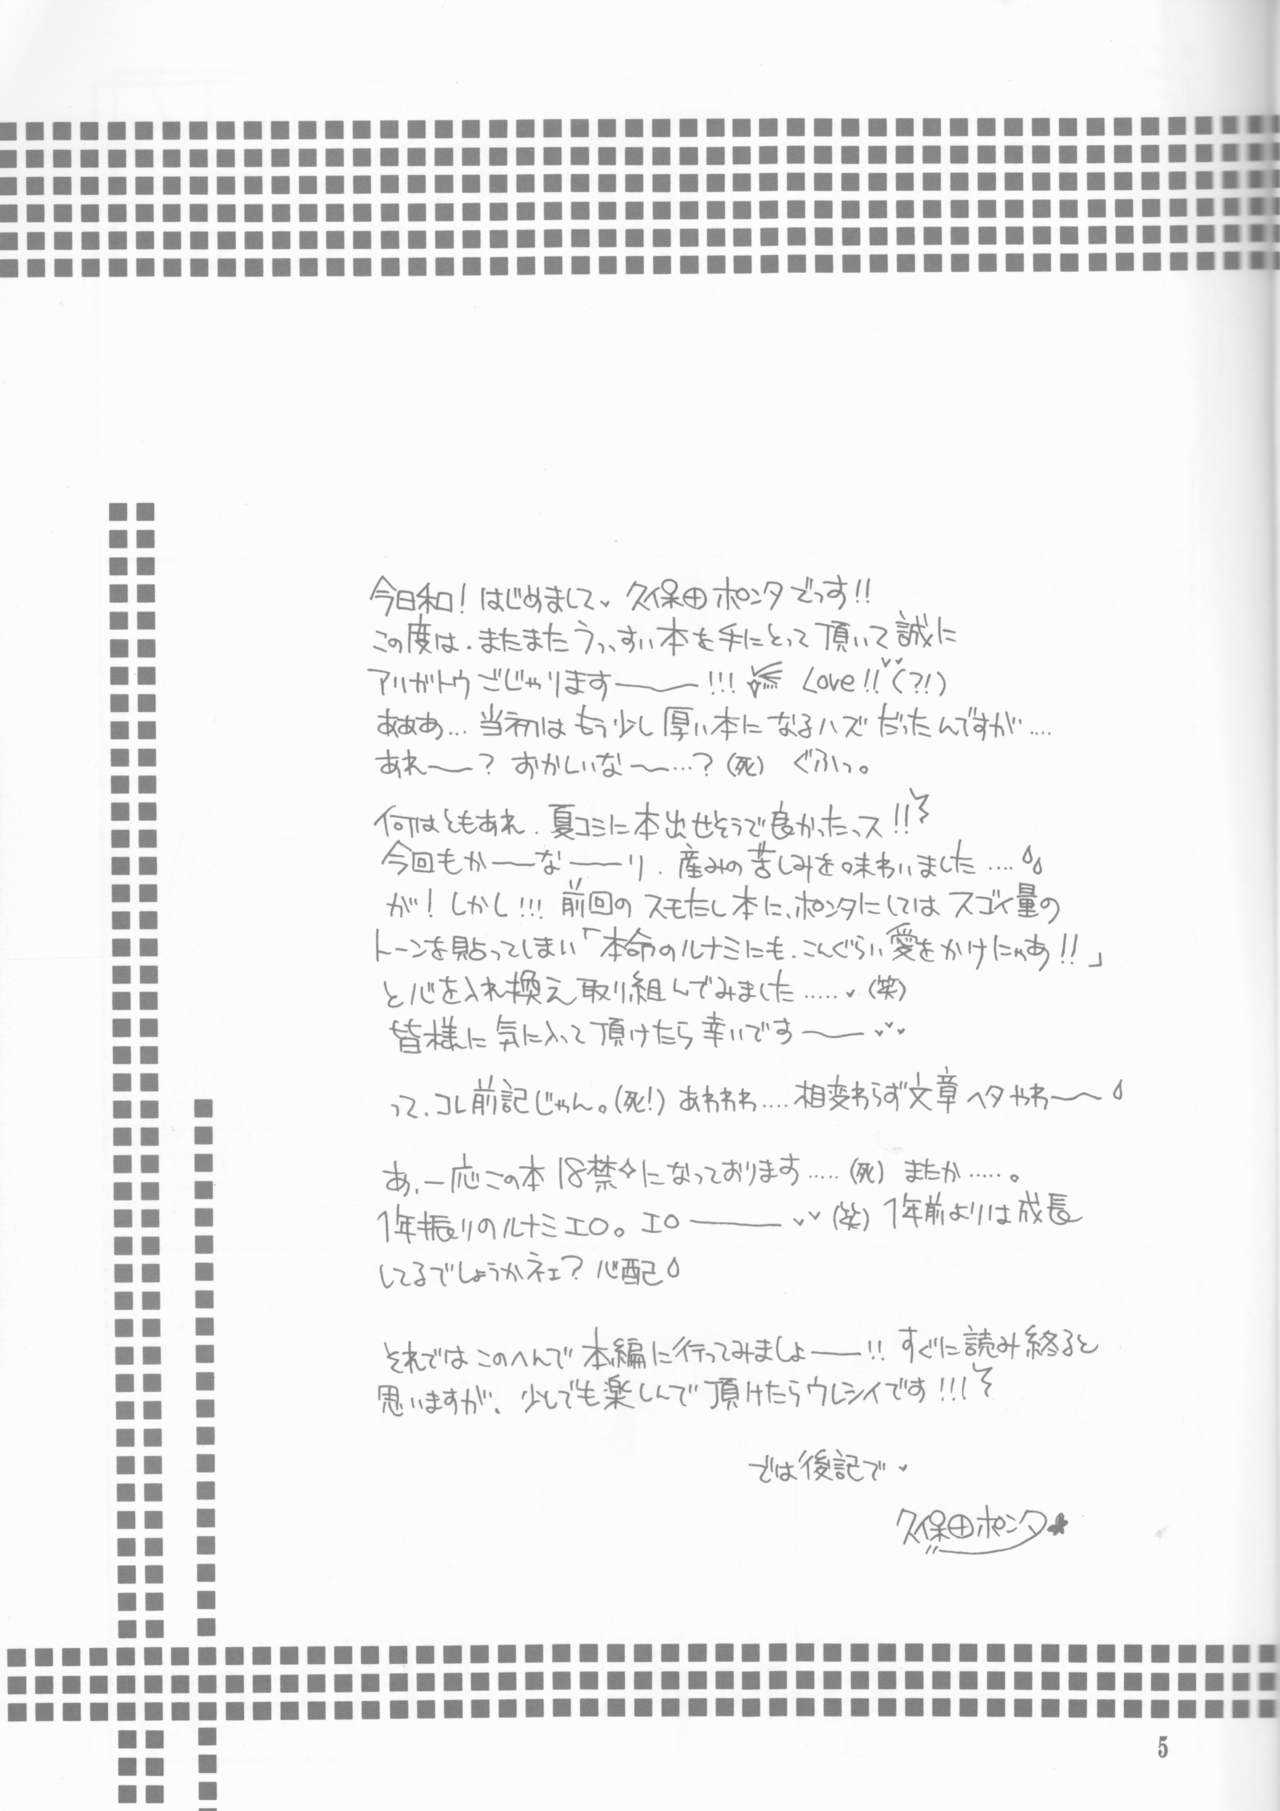 今日和！はじめまして♥ 久保田ポンタでっす！！
この度は、またまたうっすい本を手にとって頂いて誠に
アリガトウごじゃりますーーー！！！ Love！！♥♥（？！）
あああ…当初はもう少し厚い本になるハズだったんですが….
あれ～～？おかしいな～…？（死）ぐふっ。
何はともあれ、夏コミに本出せそうで良かったっス！！
今回もかーーなーーり、産みの苦しみを味わいました….
が！しかし！！！前回のスモたし本に、ポンタにしてはスゴイ量の
トーンを貼ってしまい「本命のルナミにも、こんぐらい愛をかけにゃあ！！」
と心を入れ換え取り組んでみました…..♥（笑）
皆様に気に入って頂けたら幸いですーーー♥♥
って、コレ前記じゃん。（死！）あわわわ….相変わらず文章ヘタやわ～～
あ、一応この本18禁✧になっております…..（死）またか…..。
1年振りのルナミエロ。エローーーー♥♥（笑）1年前よりは成長
してるでしょうかネェ？心配
それではこのへんで本編に行ってみましょーーー！！すぐに読み終ると
思いますが、少しでも楽しんで頂けたらウレシイです！！！
では後記で♥
久保田ポンタ
5